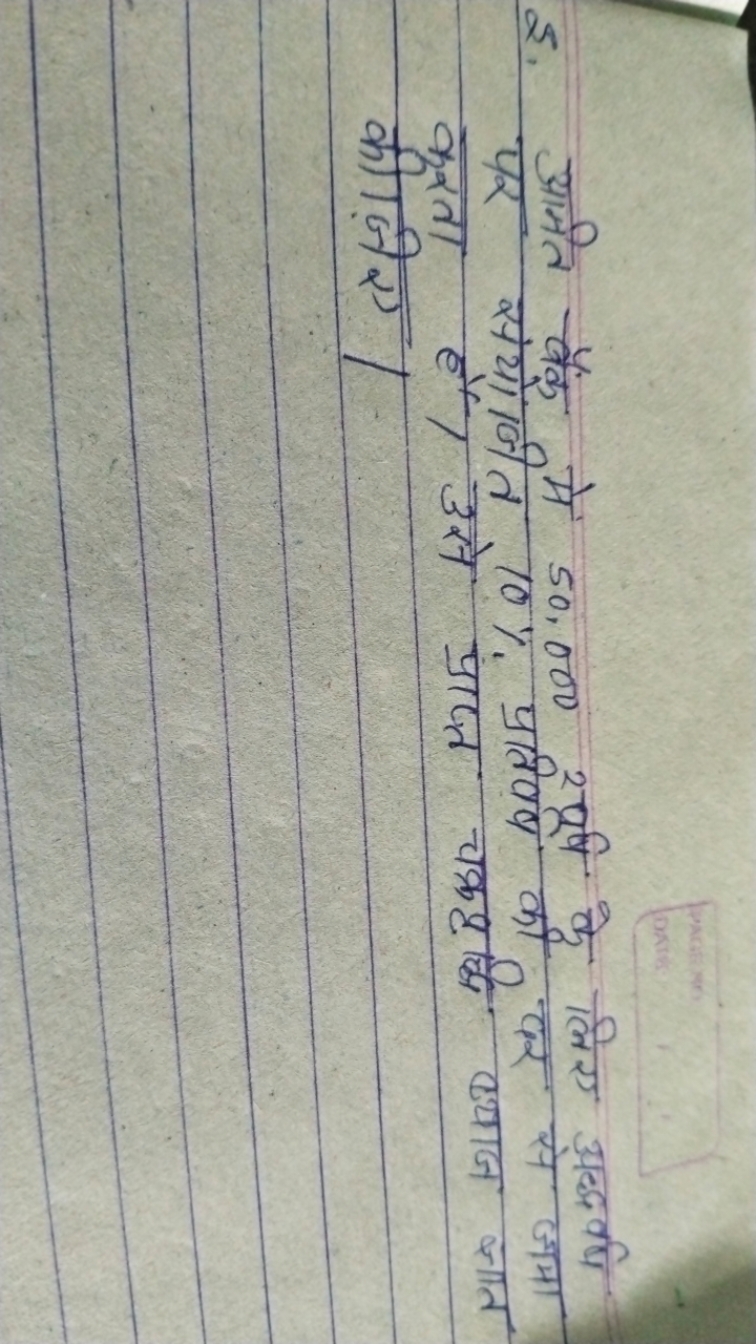 5. अमित बैंक में 50,000 रूपये के लिए अर्द्धवर्ष
पर संयोजित 10% प्रतिवर्ष की दर से जमा
करता है, उसे प्राप्त चक्रवृद्धि ब्याज ज्ञात
कीजिए।
PAGE NO.
DATE